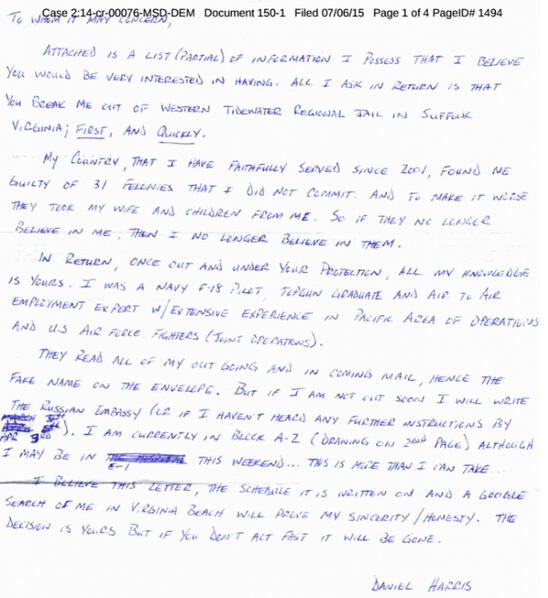 Case 2:14-cr-00076-MSD-DEM Document 150-1 Filed 07/06/15 Page 1 of 4 PageID# 1494
TO WHOM IT MAY CONCERN,
ATTACHED IS A LIST (PARTIAL) OF INFORMATION I POSSESS THAT I BELIEVE
YOU WOULD BE VERY INTERESTED IN HAVING. ALL I ASK IN RETURN IS THAT
YOU BREAK ME OUT OF WESTERN TIDEWATER REGIONAL JAIL IN SUFFOLK
VIRGINIA; FIRST, AND QUICKLY.
MY COUNTRY, THAT I HAVE FAITHFULLY SERVED SINCE 2001, FOUND ME
GUILTY OF 31 FELONIES THAT I DID NOT COMMIT. AND TO MAKE IT WORSE
THEY TOOK MY WIFE AND CHILDREN FROM ME. SO IF THEY NO LONGER
BELIEVE IN ME, THEN I NO LONGER BELIEVE IN THEM.
IN RETURN, ONCE OUT AND UNDER YOUR PROTECTION, ALL MY KNOWLEDGE
IS YOURS. I WAS A NAVY F-18 PILOT, TOPGUN GRADUATE AND AIR TO AIR
EMPLOYMENT EXPERT W/EXTENSIVE EXPERIENCE IN PACIFIC AREA OF OPERATIONS
AND U.S AIR FORCE FIGHTERS (JOINT OPERATIONS).
THEY READ ALL OF MY OUT GOING AND IN COMING MAIL, HENCE THE
FAKE NAME ON THE ENVELOPE. BUT IF I AM NOT OUT SOON I WILL WRITE
THE RUSSIAN EMBASSY (OR IF I HAVEN'T HEARD ANY FURTHER INSTRUCTIONS BY
APR 3RD). I AM CURRENTLY IN BLOCK A-2 (DRAWING ON 2ND PAGE) ALTHOUGH
I MAY BE IN E-1 THIS WEEKEND... THIS IS MORE THAN I CAN TAKE...
I BELIEVE THIS LETTER, THE SCHEDULE IT IS WRITTEN ON AND A GOOGLE
SEARCH OF ME IN VIRGINIA BEACH WILL PROVE MY SINCERITY/HONESTY. THE
DECISION IS YOURS BUT IF YOU DON'T ACT FAST IT WILL BE GONE.
DANIEL HARRIS